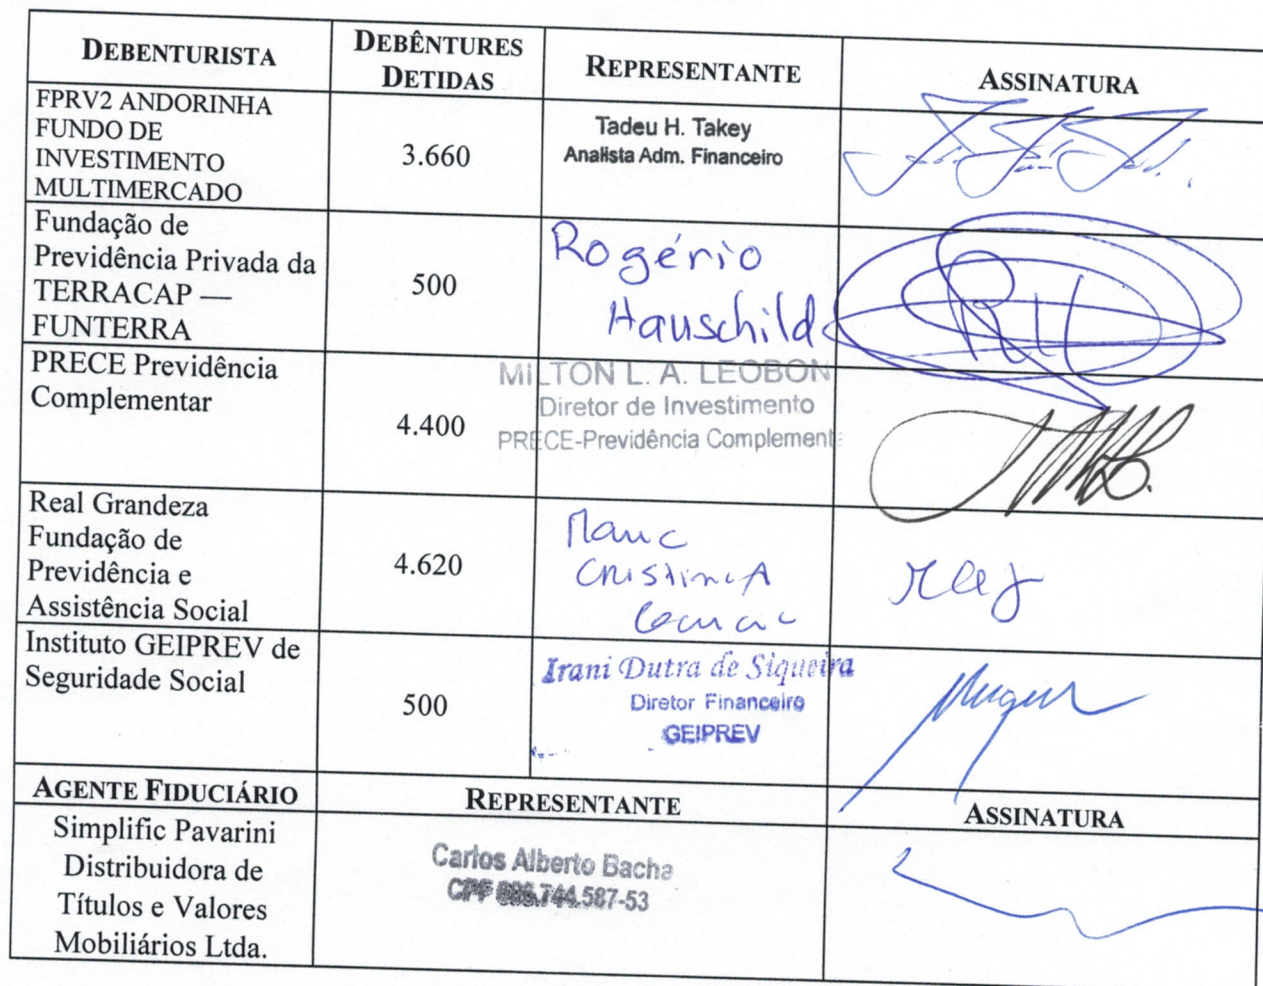 DEBENTURISTA
DEBÊNTURES
DETIDAS
REPRESENTANTE
ASSINATURA
FPRV2 ANDORINHA
FUNDO DE
INVESTIMENTO
MULTIMERCADO
3.660
Tadeu H. Takey
Analista Adm. Financeiro
Fundação de
Previdência Privada da
TERRACAP —
FUNTERRA
500
Rogério
Hauschild
PRECE Previdência
Complementar
4.400
MILTON L. A. LEOBON
Diretor de Investimento
PRECE-Previdência Complement
Real Grandeza
Fundação de
Previdência e
Assistência Social
4.620
CRISTINA
Instituto GEIPREV de
Seguridade Social
500
Irani Dutra de Siqueira
Diretor Financeiro
GEIPREV
AGENTE FIDUCIÁRIO
REPRESENTANTE
ASSINATURA
Simplific Pavarini
Distribuidora de
Títulos e Valores
Mobiliários Ltda.
Carlos Alberto Bacha
CPF